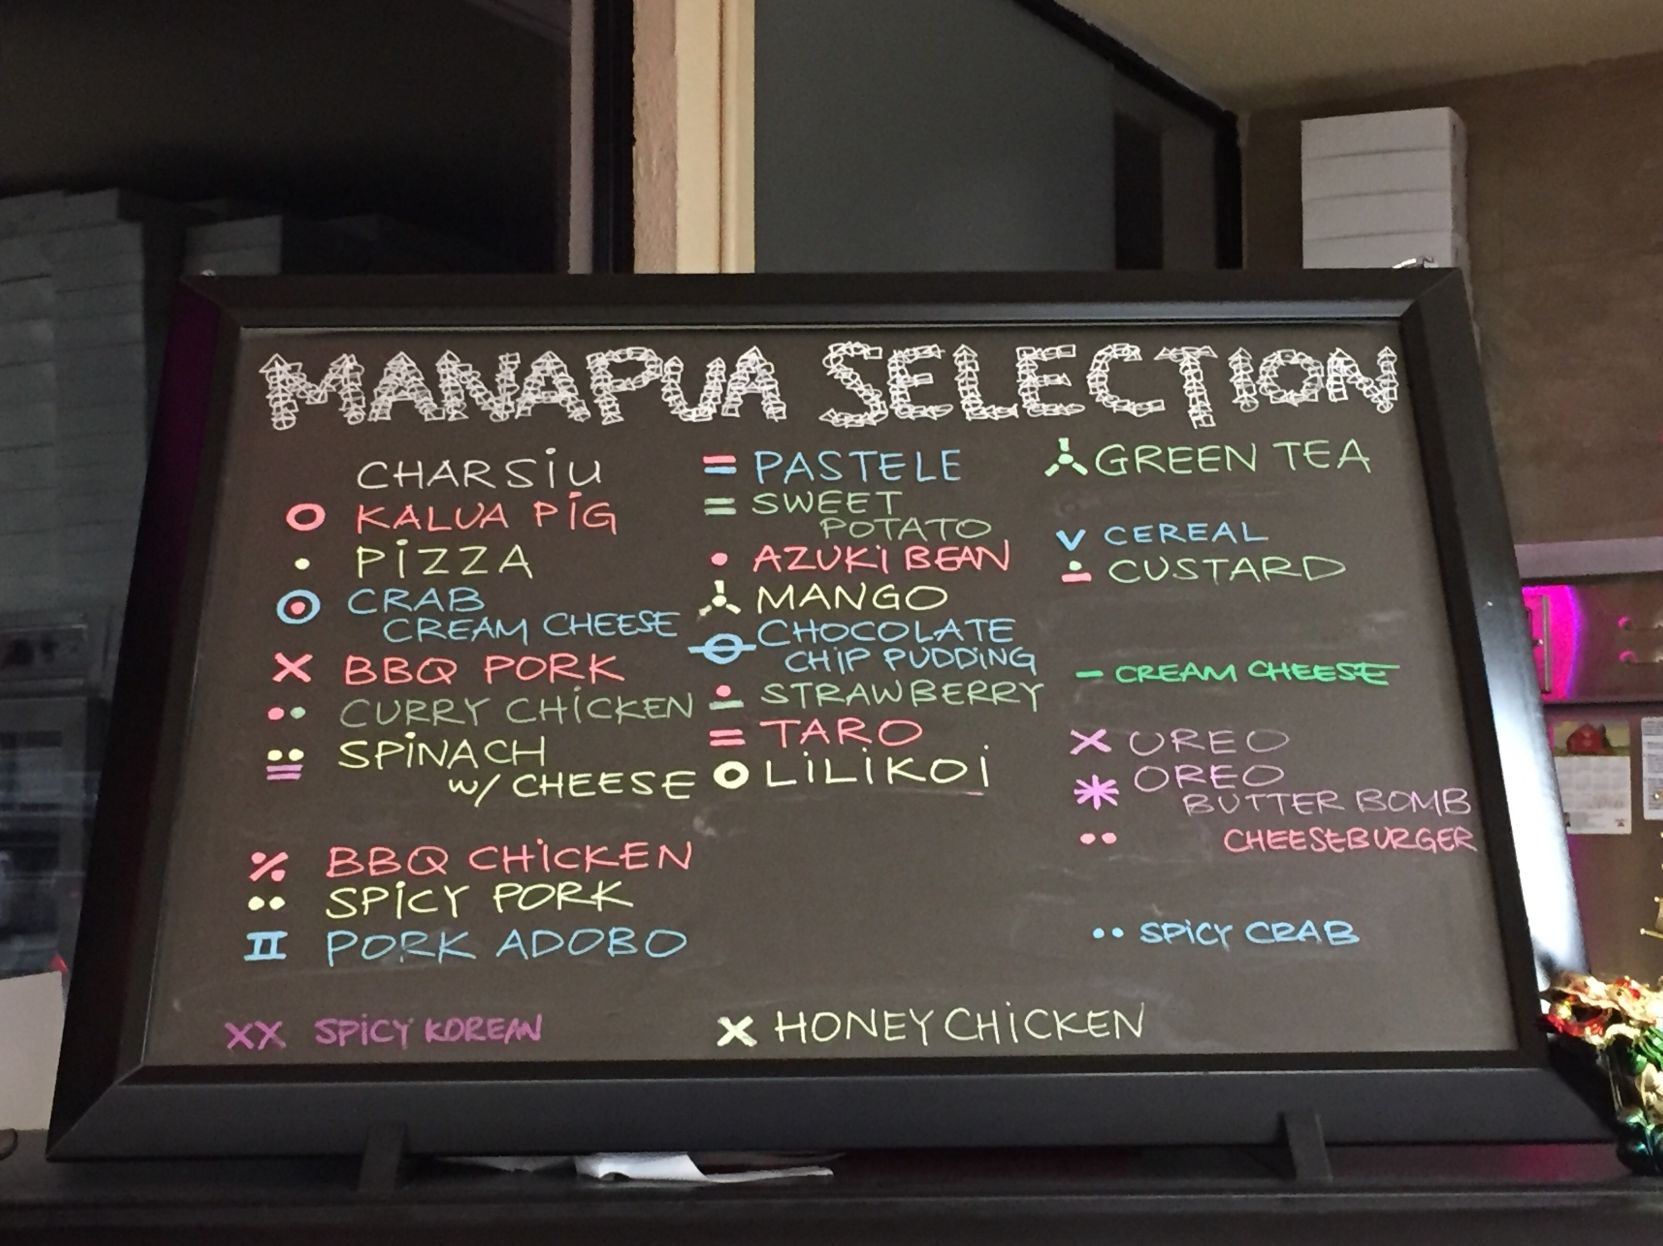 MANAPUA SELECTION
CHARSiU
O KALUA PiG
• PiZZA
CRAB
CREAM CHEESE
X BBQ PORK
•• CURRY CHiCKEN
SPiNACH
w/ CHEESE
% BBQ CHiCKEN
•• SPiCY PORK
II PORK ADOBO
XX SPiCY KOREAN
= PASTELE
= SWEET
POTATO
• AZUKi BEAN
MANGO
CHOCOLATE
CHiP PUDDiNG
STRAWBERRY
= TARO
O LiLiKOi
X HONEY CHiCKEN
GREEN TEA
V CEREAL
CUSTARD
- CREAM CHEESE
X OREO
* OREO
BUTTER BOMB
•• CHEESEBURGER
•• SPiCY CRAB